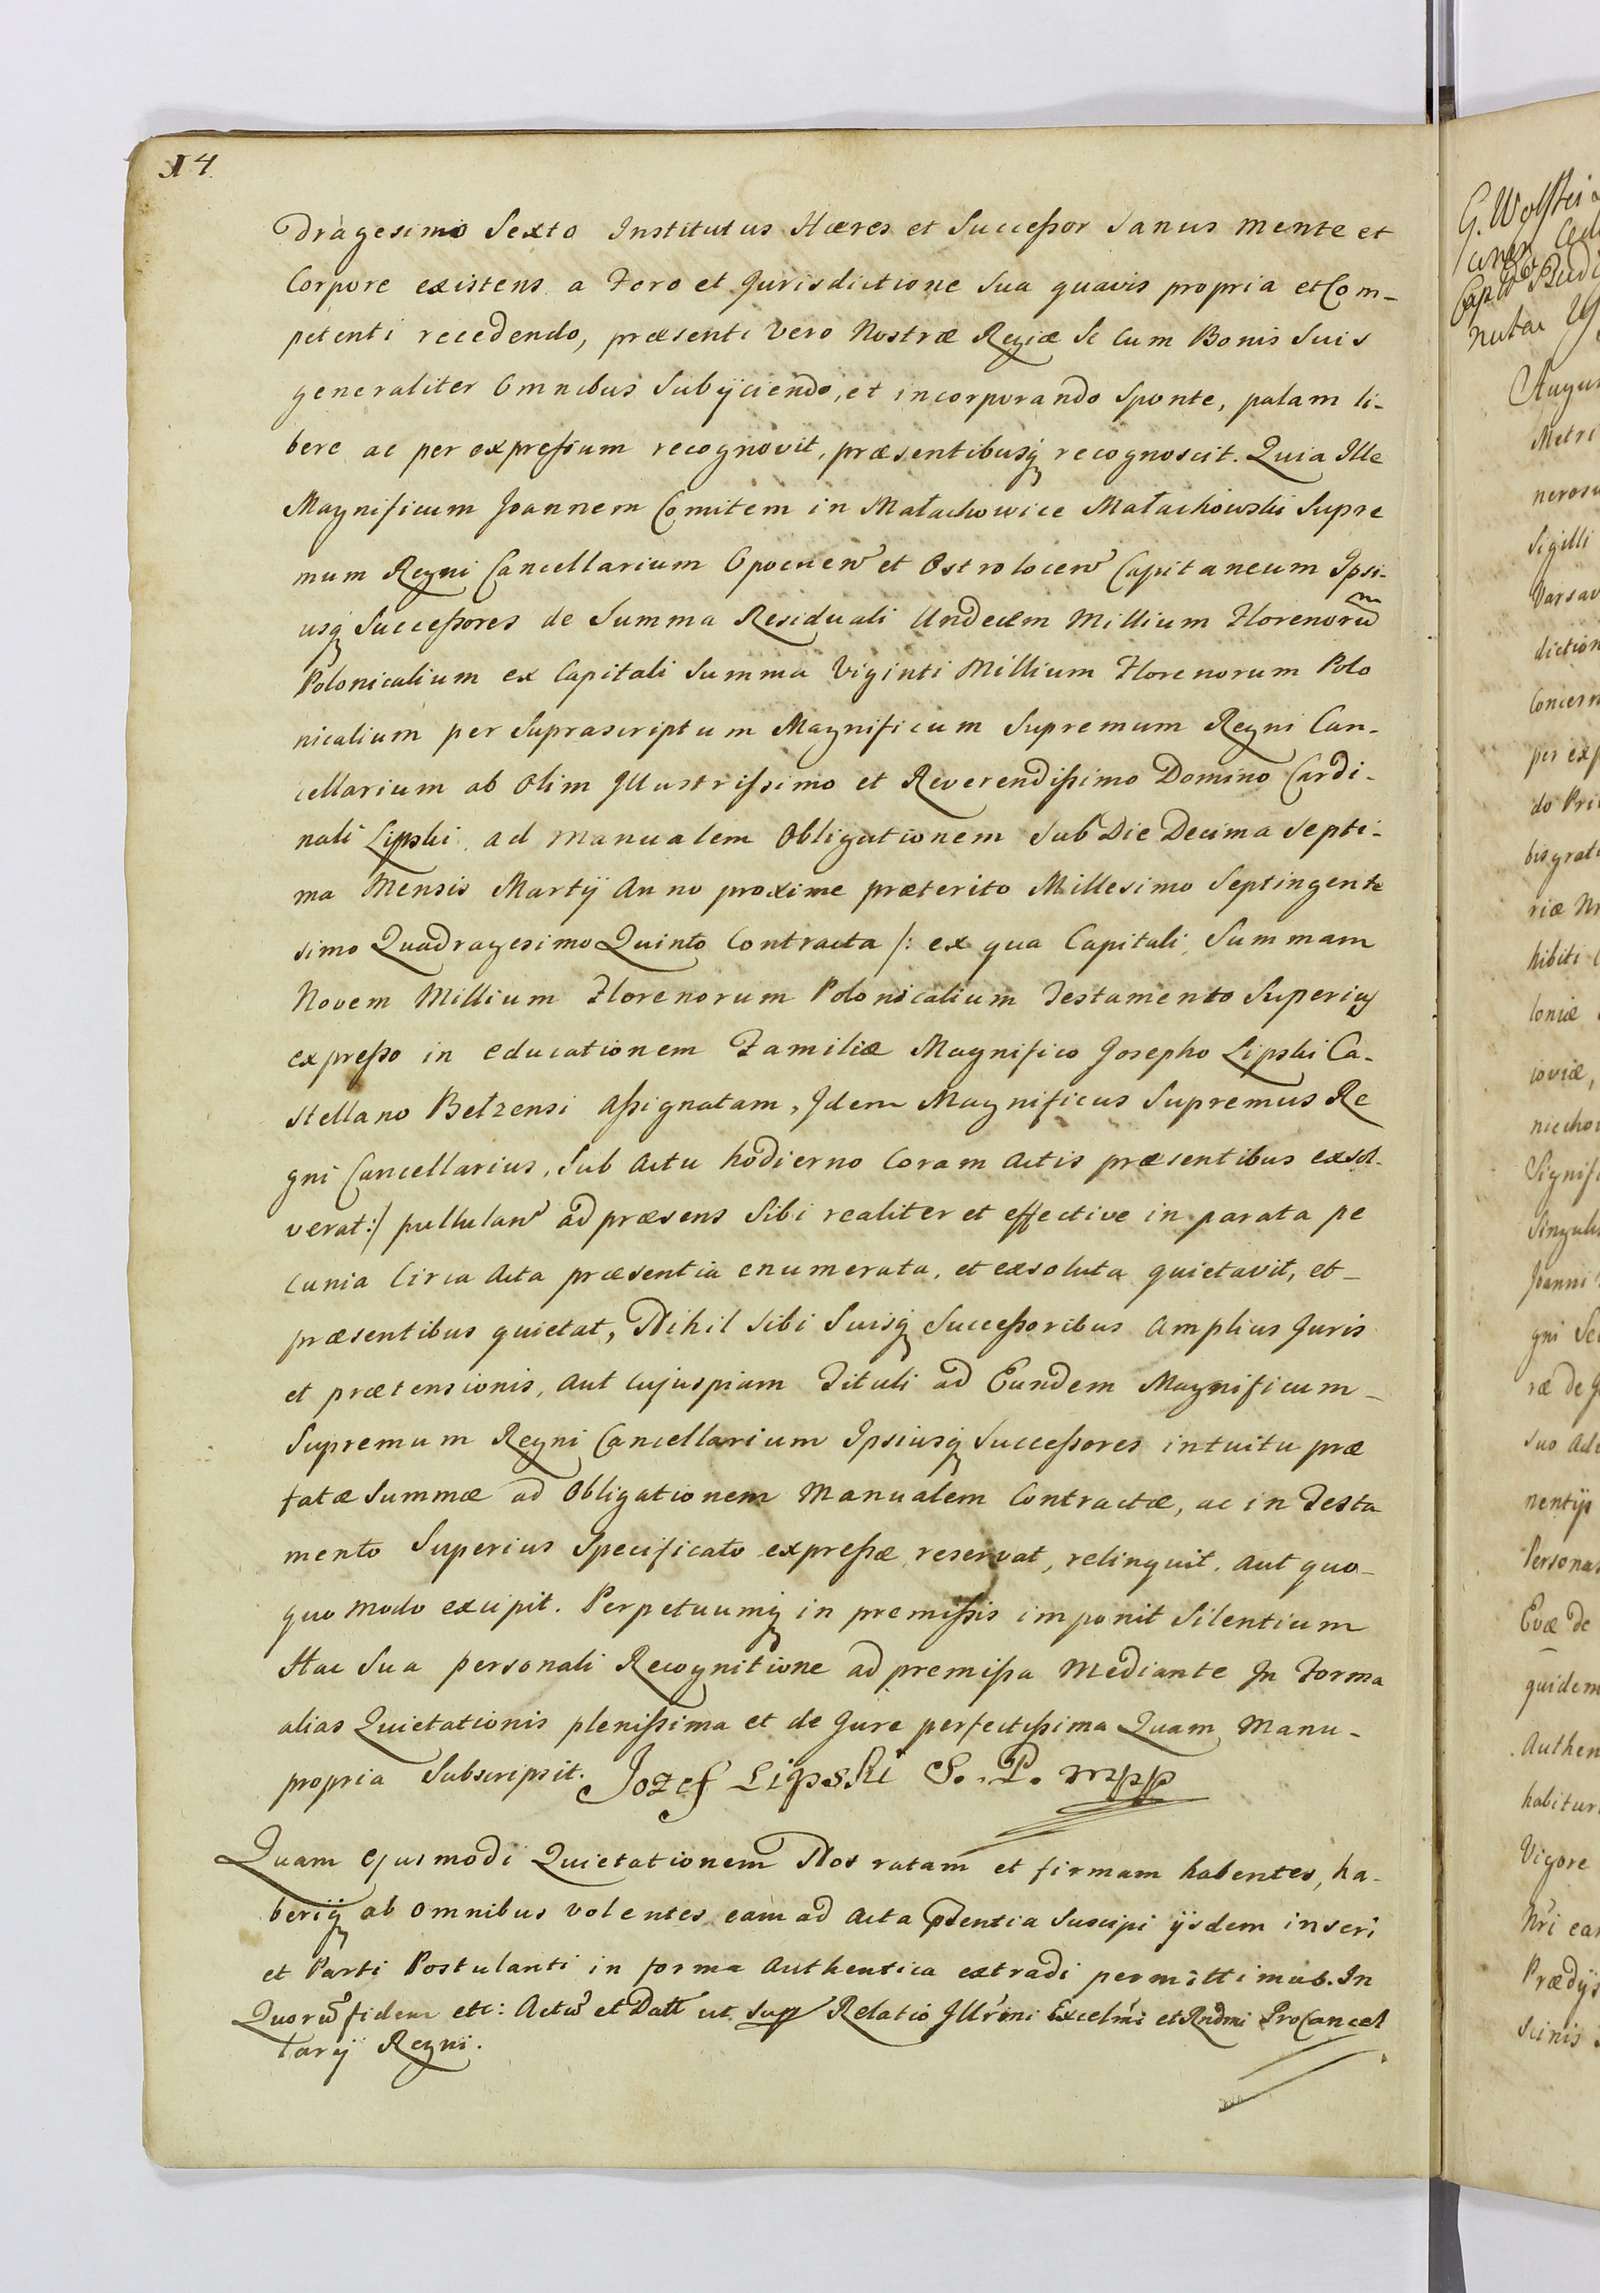 14
dragesimo Sexto Institutus Hæres et Successor Sanus mente et
Corpore existens a Foro et Jurisdictione Sua quavis propria et Com-
petenti recedendo, præsenti vero Nostræ Regiæ Se cum Bonis Suis
generaliter Omnibus Subijciendo, et incorporando Sponte, palam li-
bere ac per expressum recognovit, præsentibusq recognoscit. Quia Ille
Magnificum Joannem Comitem in Małachowice Małachowski Supre
mum Regni Cancellarium Opocnen et Ostrolocen Capitaneum Ipsi-
usq Successores de Summa Residuali Undecem Millium Florenoru
Polonicalium ex Capitali Summa Viginti Millium Florenorum Polo
nicalium per Suprascriptum Magnificum Supremum Regni Can-
cellarium ab Olim Illustrissimo et Reverendissimo Domino Cardi-
nali Lipski ad manualem Obligationem Sub Die Decima Septi-
ma Mensis Martij Anno proxime præterito Millesimo Septingente
simo Quadragesimo Quinto Contracta /: ex qua Capitali Summam
Novem Millium Florenorum Polonicalium Testamento Superius
expresso in educationem Familiæ Magnifico Josepho Lipski Ca-
stellano Bełzensi Assignatam, Idem Magnificus Supremus Re
gni Cancellarius, Sub Actu hodierno Coram Actis præsentibus exsol-
verat:/ pullulan ad præsens Sibi realiter et effective in parata pe
cunia Circa Acta præsentia enumerata, et exsoluta quietavit, et-
præsentibus quietat, Nihil Sibi Suisq Successoribus Amplius Juris
et prætensionis, Aut Cujuspiam Tituli ad Eundem Magnificum-
Supremum Regni Cancellarium Ipsiusq Successores intuitu præ
fatæ Summæ ad Obligationem Manualem Contractæ, ac in Testa
mento Superius Specificato expressæ reservat, relinquit, Aut quo-
quo modo excipit. Perpetuumq in premissis imponit Silentium
Hac Sua personali Recognitione ad premissa Mediante In Forma
alias Quietationis plenissima et de Jure perfectissima Quam Manu-
propria Subscripsit. Jozef Lipski C. P. mpp
Quam Ejusmodi Quietationem Nos ratam et firmam habentes, ha-
beriq ab Omnibus volentes eam ad Acta pdentia Suscipi ijsdem inseri
et Parti Postulanti in forma Authentica extradi permittimus. In
Quoru fidem etc: Actu et Datt ut Supp Relatio Illrmi Excelmi et Rndmi ProCancel
larij Regni.
G. Wolfstei
Augus
Metri
neros
Sigilli
Varsav
diction
Concern
per exp
do Pri
bis grat
riæ Nr
hibiti
loniæ
ioviæ,
niecho
Signif
Singul
Joanni
gni Se
ræ de
suo ad
nentijs
Personas
Evæ de
quidem
Authen
habitur
Vigore
Nri ea
Prædijs
Scinis